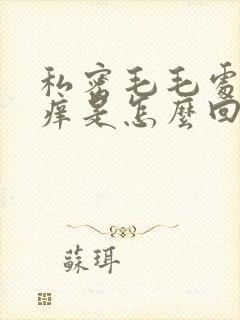 私密毛毛處
痒是怎麼回
蘇珥